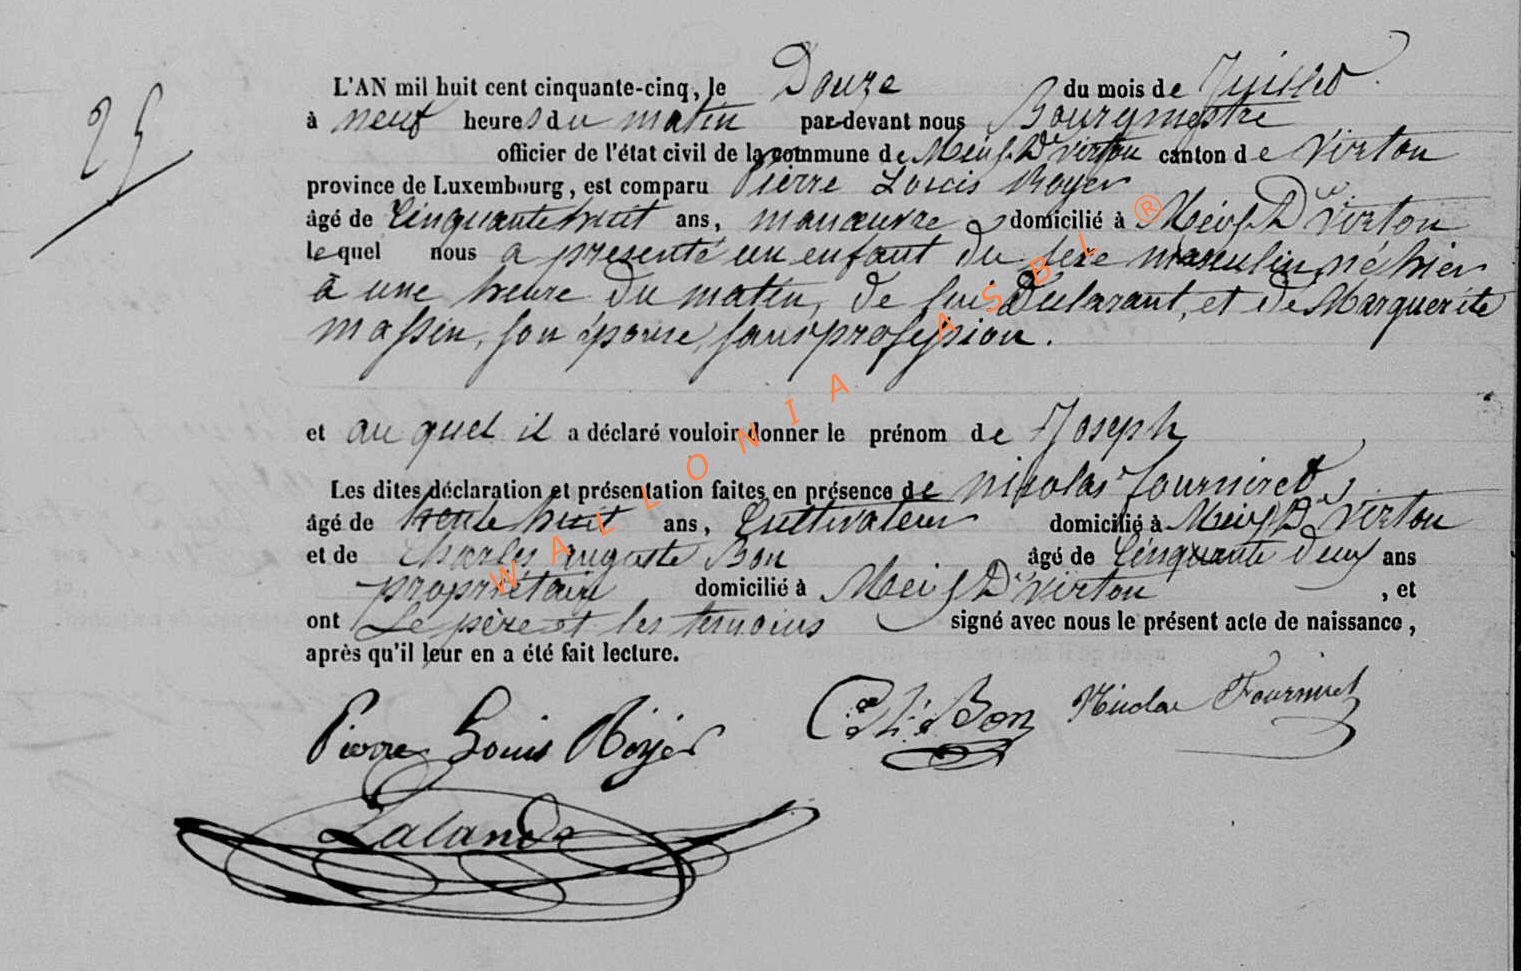 25
L'AN mil huit cent cinquante-cinq, le Douze du mois de Juillet
à neuf heures du matin par-devant nous Bourgmestre
officier de l'état civil de la commune de Meix Dt Virton canton de Virton
province de Luxembourg, est comparu Pierre Louis Royer
âgé de Cinquante huit ans, manœuvre domicilié à Meix Dt Virton
lequel nous a présenté un enfant du sexe masculin né hier
à une heure du matin, de lui Déclarant, et de Marguerite
Massin, son épouse, sans profession.
et auquel il a déclaré vouloir donner le prénom de Joseph
Les dites déclaration et présentation faites en présence de Nicolas Fourniret
âgé de trente huit ans, Cultivateur domicilié à Meix Dt Virton
et de Charles Auguste Bon âgé de Cinquante deux ans
propriétaire domicilié à Meix Dt Virton, et
ont Le père et les temoins signé avec nous le présent acte de naissance,
après qu'il leur en a été fait lecture.
Pierre Louis Royer Bon Nicolas Fourniret
Lalande
WALLONIA ASBL ®